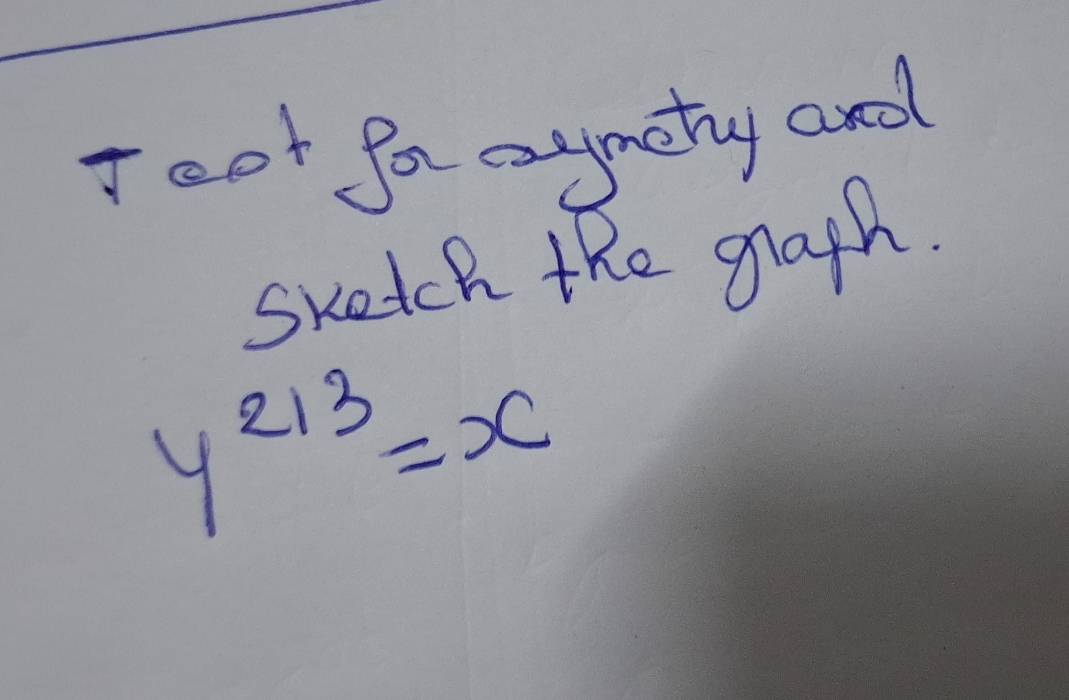 Test for symetry and
sketch the graph.
y^2/3 = x